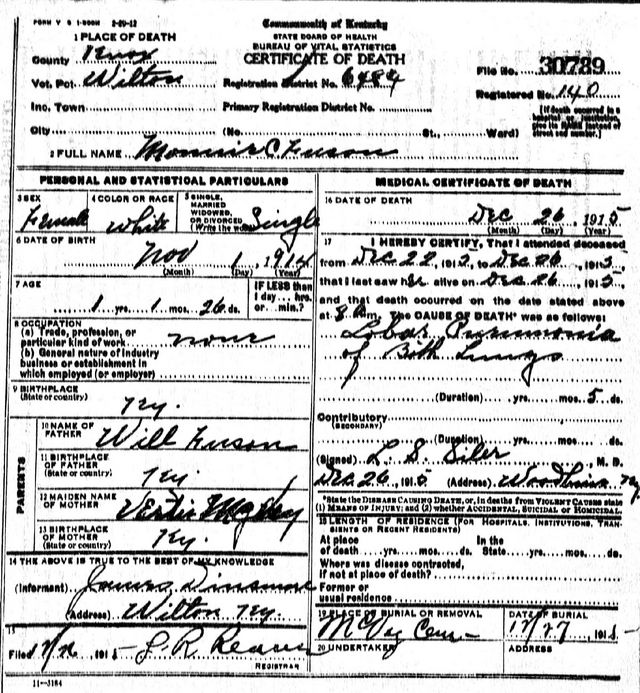 FORM V S 1-500M 2-29-12
Commonwealth of Kentucky
STATE BOARD OF HEALTH
BUREAU OF VITAL STATISTICS
CERTIFICATE OF DEATH
1 PLACE OF DEATH
County Knox
Vot. Pct. Wilton
Inc. Town
City
Registration District No. 6484
Primary Registration District No.
File No. 30789
Registered No. 140
[If death occurred in a
hospital or institution,
give its NAME instead of
street and number.]
(No. St., Ward)
2 FULL NAME C Fuson
PERSONAL AND STATISTICAL PARTICULARS
3 SEX
Female
4 COLOR OR RACE
White
5 SINGLE,
MARRIED
WIDOWED,
OR DIVORCED
(Write the word)
Single
6 DATE OF BIRTH
Nov 1 1914
(Month) (Day) (Year)
7 AGE
1 yrs. 1 mos. 26 ds.
IF LESS than
1 day... hrs.
or... min.?
8 OCCUPATION
(a) Trade, profession, or
particular kind of work none
(b) General nature of industry
business or establishment in
which employed (or employer)
9 BIRTHPLACE
(State or country)
Ky.
PARENTS
10 NAME OF
FATHER
Will Fuson
11 BIRTHPLACE
OF FATHER
(State or country)
Ky.
12 MAIDEN NAME
OF MOTHER
13 BIRTHPLACE
OF MOTHER
(State or country)
Ky.
14 THE ABOVE IS TRUE TO THE BEST OF MY KNOWLEDGE
(Informant) James Dinsmore
(Address) Wilton Ky.
15
Filed 12/26, 1915 L. R.
REGISTRAR
11-3184
MEDICAL CERTIFICATE OF DEATH
16 DATE OF DEATH
Dec 26, 1915
(Month) (Day) (Year)
17 I HEREBY CERTIFY, That I attended deceased
from Dec 22, 1915, to Dec 26, 1915,
that I last saw her alive on Dec 26, 1915,
and that death occurred on the date stated above
at 8 m. The CAUSE OF DEATH* was as follows:
Lobar Pneumonia
of Both Lungs
(Duration) yrs. mos. 5 ds.
Contributory
(SECONDARY)
(Duration) yrs. mos. ds.
(Signed) L. S. Siler, M. D.
Dec 26, 1915 (Address) Woodbine, Ky
*State the DISEASE CAUSING DEATH, or, in deaths from VIOLENT CAUSES state
(1) MEANS OF INJURY; and (2) whether ACCIDENTAL, SUICIDAL or HOMICIDAL.
18 LENGTH OF RESIDENCE (FOR HOSPITALS, INSTITUTIONS, TRAN-
SIENTS OR RECENT RESIDENTS)
At place In the
of death yrs. mos. ds. State yrs. mos. ds.
Where was disease contracted,
if not at place of death?
Former or
usual residence
19 PLACE OF BURIAL OR REMOVAL
DATE OF BURIAL
12/27, 1915
20 UNDERTAKER
ADDRESS